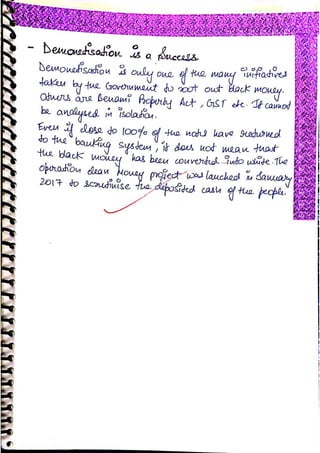 - Demonetisation is a process
Demonetisation is only one of the many initiatives
taken by the Government to root out black money.
Others are Benami Property Act, GST etc. It cannot
be analysed in isolation.
Even if close to 100% of the notes have returned
to the banking system, it does not mean that
the black money has been converted into white. The
operation clean Money project was lauched in January
2017 to scrutinise the deposited cash of the people.